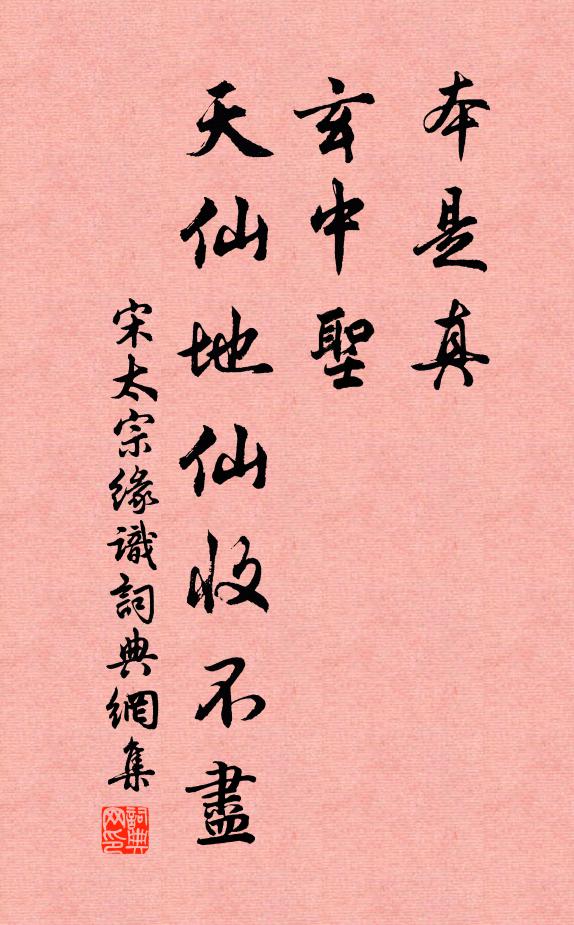 本是真
玄中聖
天仙地仙收不盡
宋太宗緣識詞典網集
詞典网印